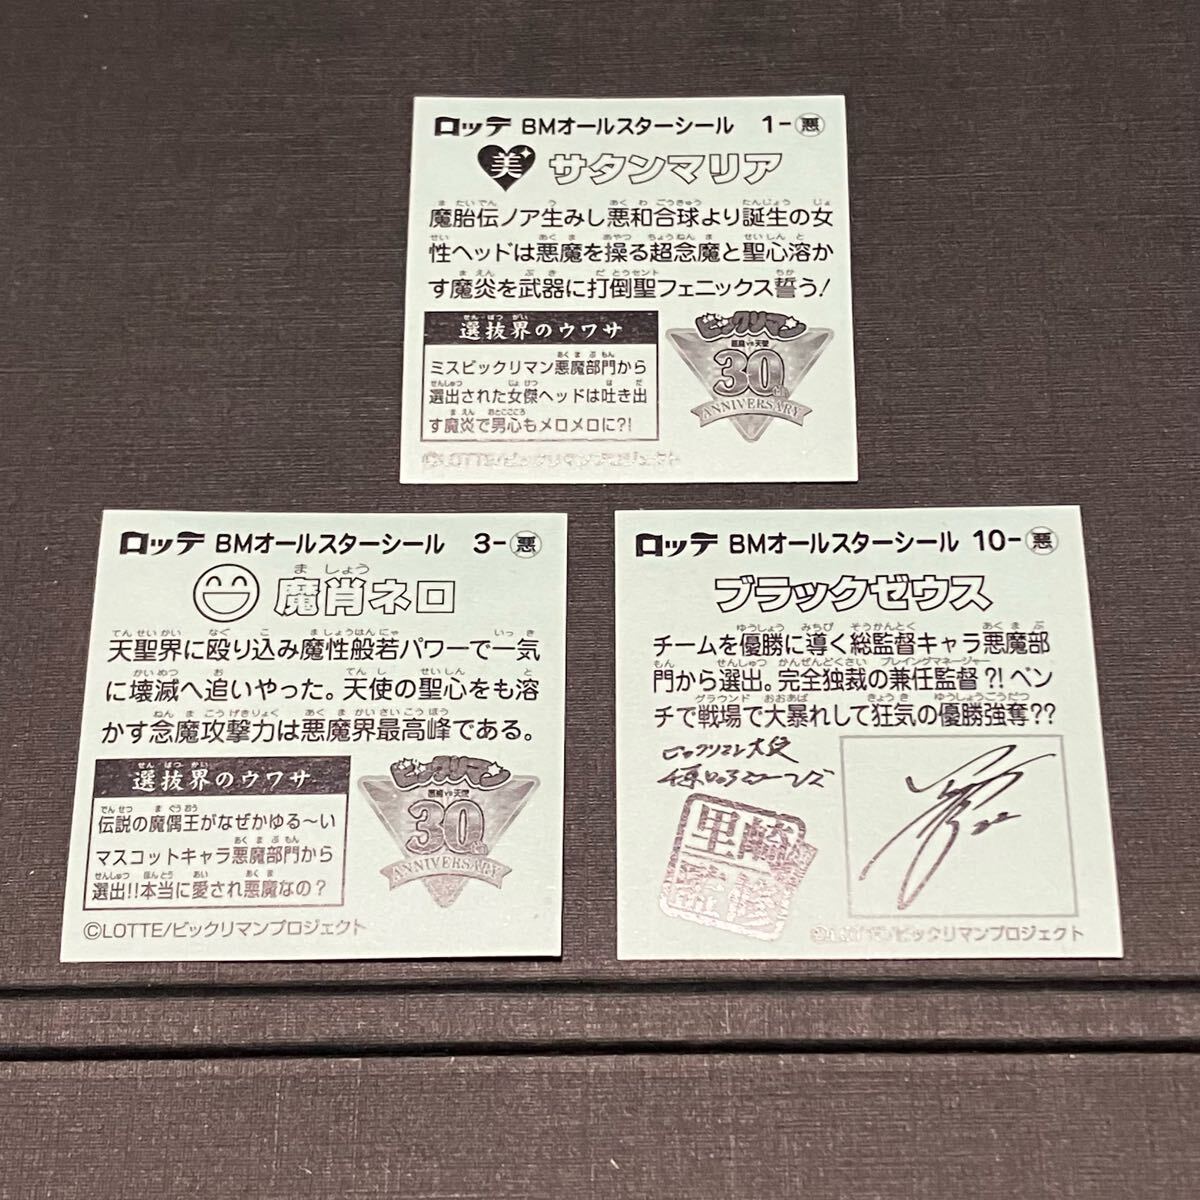 ロッテ BMオールスターシール 1-悪
美 サタンマリア
魔胎伝ノア生みし悪和合球より誕生の女
性ヘッドは悪魔を操る超念魔と聖心溶か
す魔炎を武器に打倒聖フェニックス誓う!
選抜界のウワサ
ミスビックリマン悪魔部門から
選出された女傑ヘッドは吐き出
す魔炎で男心もメロメロに?!
ビックリマン
悪魔VS天使
30th
ANNIVERSARY
©LOTTE/ビックリマンプロジェクト
ロッテ BMオールスターシール 3-悪
魔肖ネロ
天聖界に殴り込み魔性般若パワーで一気
に壊滅へ追いやった。天使の聖心をも溶
かす念魔攻撃力は悪魔界最高峰である。
選抜界のウワサ
伝説の魔偶王がなぜかゆる〜い
マスコットキャラ悪魔部門から
選出!!本当に愛され悪魔なの?
ビックリマン
悪魔VS天使
30th
ANNIVERSARY
©LOTTE/ビックリマンプロジェクト
ロッテ BMオールスターシール 10-悪
ブラックゼウス
チームを優勝に導く総監督キャラ悪魔部
門から選出。完全独裁の兼任監督?!ベン
チで戦場で大暴れして狂気の優勝強奪??
里崎
©LOTTE/ビックリマンプロジェクト